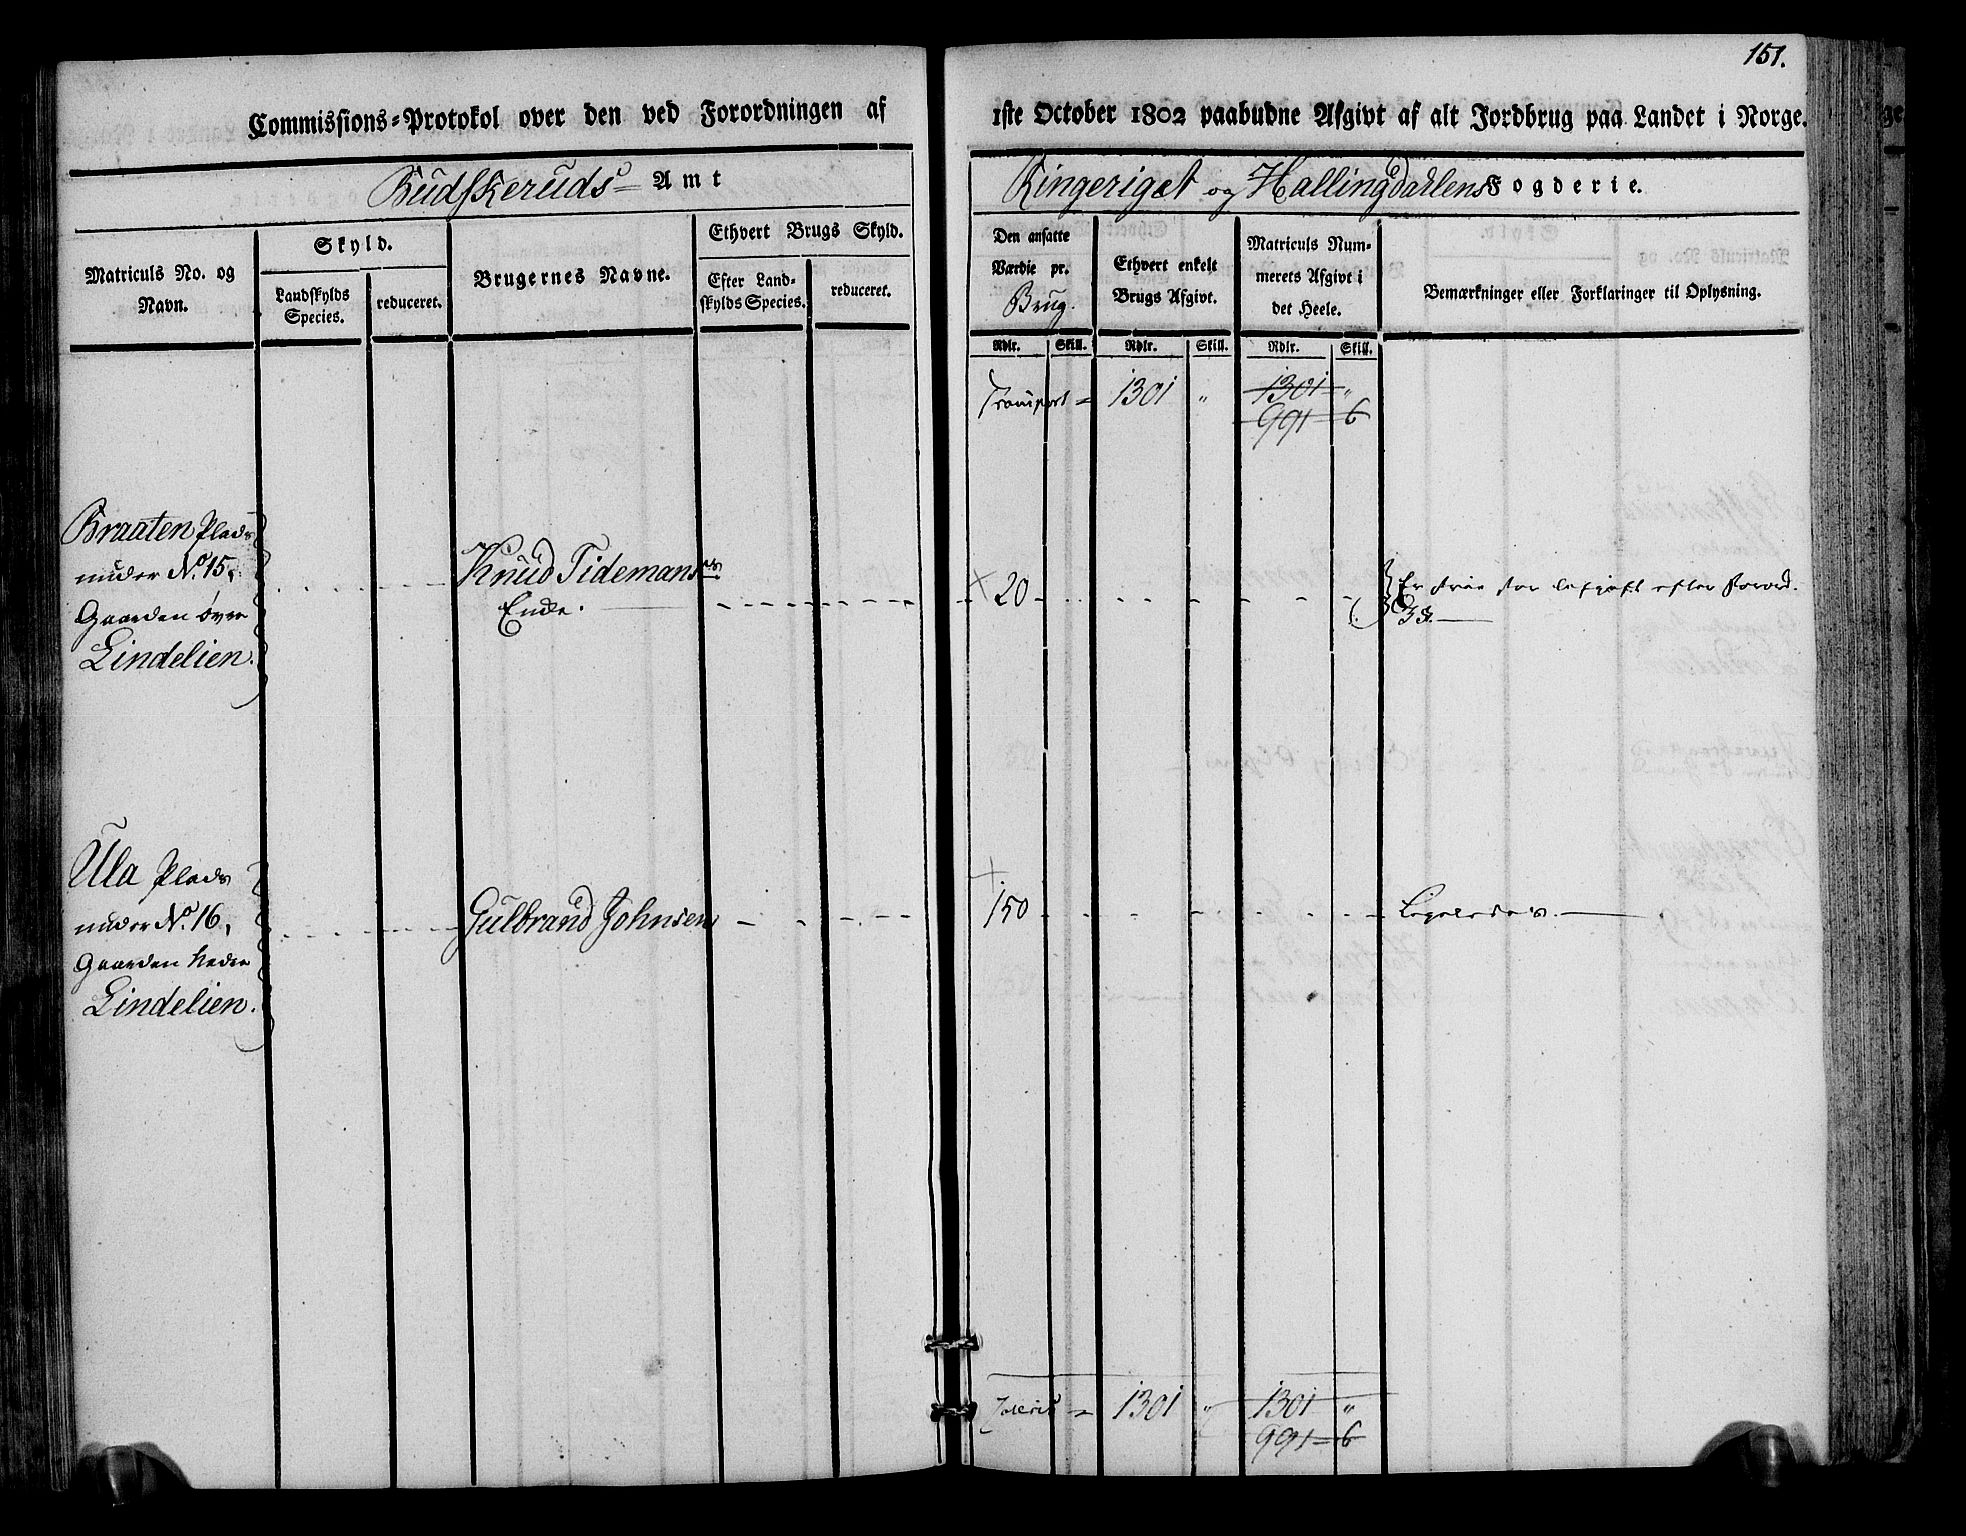 151.
Commissions-Protokol over den ved Forordningen af 1ste October 1802 paabudne Afgivt af alt Jordbrug paa Landet i Norge.
Budskeruds Amt
Ringeriget og Hallingdahlens Fogderie.
Matriculs No. og Navn.
Skyld.
Landskylds Species.
reduceret.
Brugernes Navne.
Ethvert Brugs Skyld.
Efter Landskylds Species.
reduceret.
Den ansatte Værdie pr. Brug.
Ethvert enkelt Brugs Afgivt.
Matriculs Nummerets Afgivt i det Heele.
Bemærkninger eller Forklaringer til Oplysning.
Rdlr. Skill. Rdlr. Skill. Rdlr. Skill.
Transport = 1301 " 1301 "
991 = 6
Braaten Plads
under No. 15,
Gaarden övre
Lindelien.
Knud Tidemans
Enke.
20
Er frie for Afgivt efter Forord.
3 §.
Ula Plads
under No. 16,
Gaarden nedre
Lindelien.
Gulbrand Johnsen
150
Ligeledes.
1301 " 1301 "
991 = 6